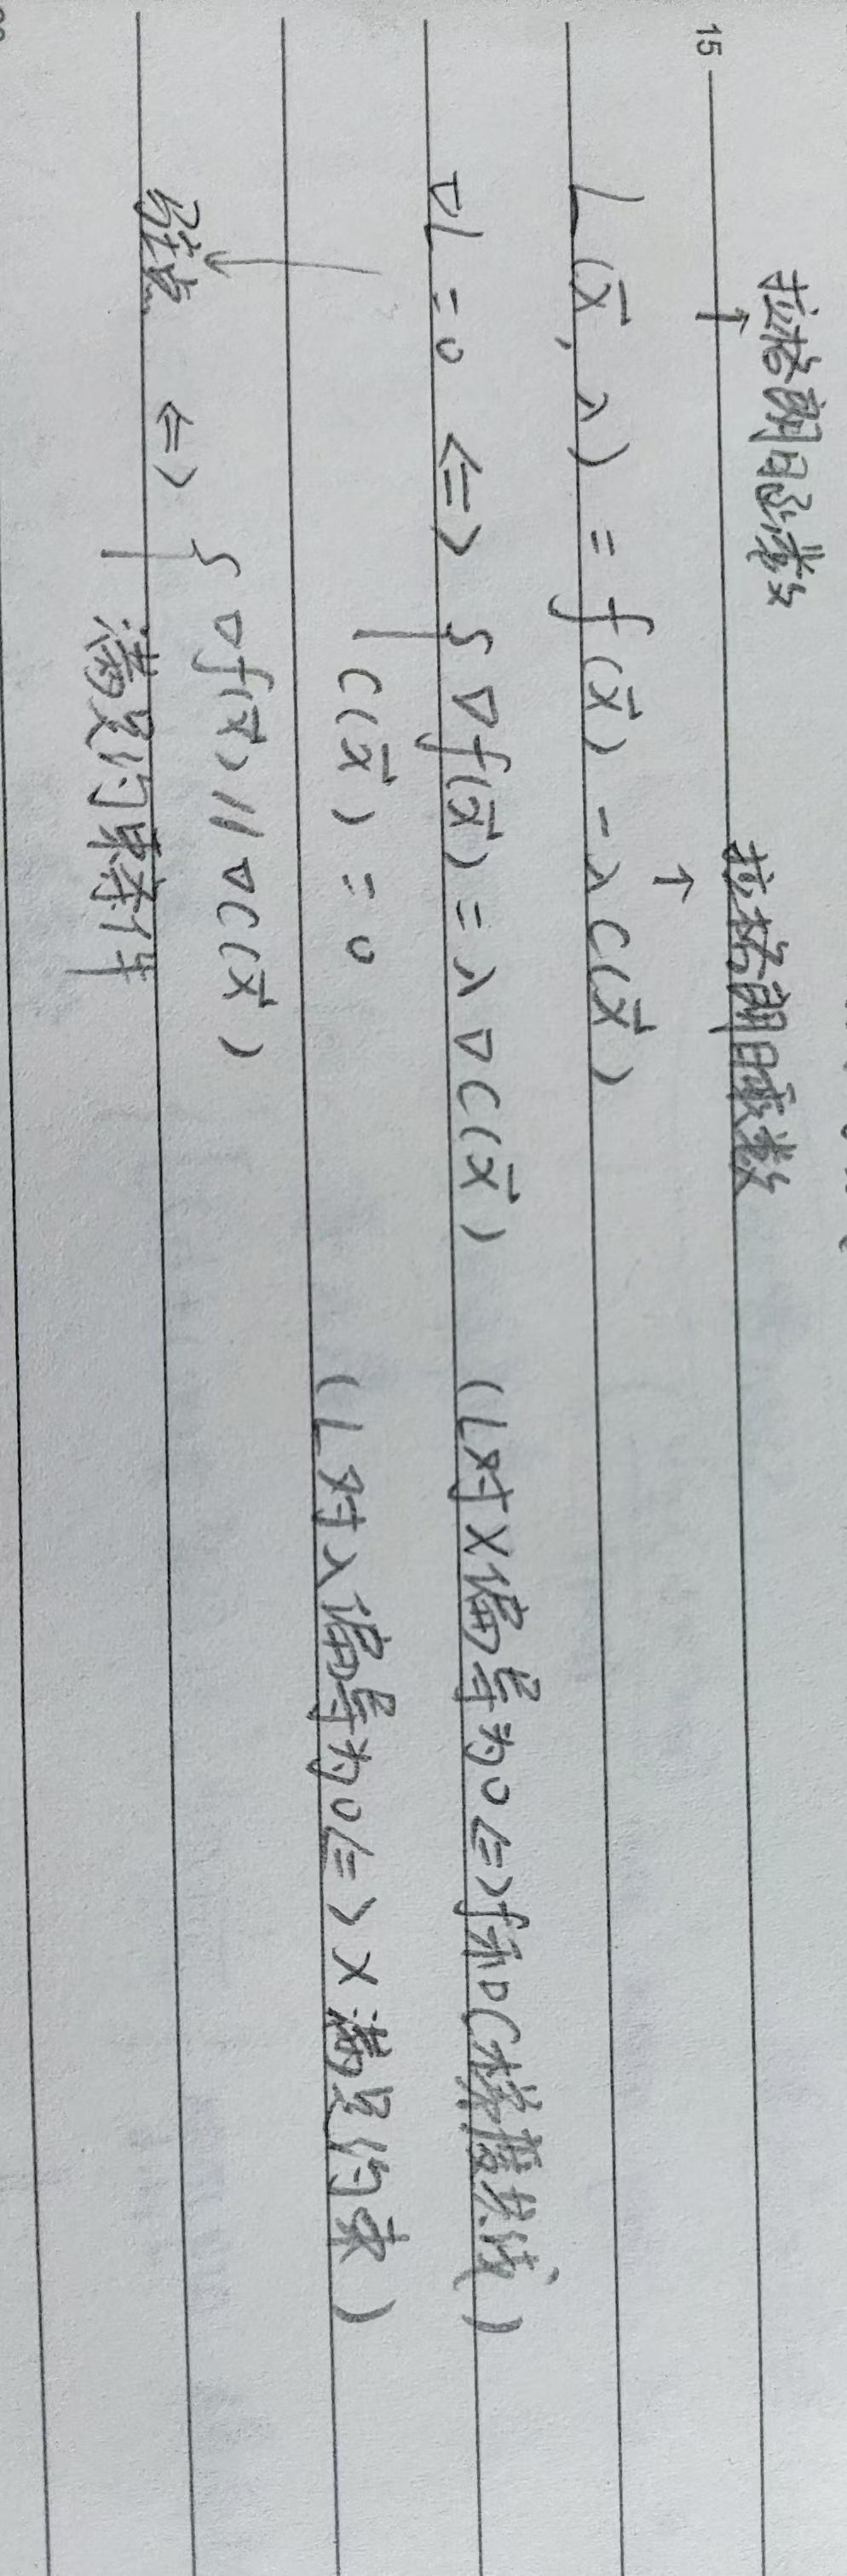 15
拉格朗日函数 拉格朗日乘数
L(x⃗, λ) = f(x⃗) - λ C(x⃗)
∇L = 0 <=> { ∇f(x⃗) = λ∇C(x⃗) (L对x偏导为0<=>f和C梯度共线)
C(x⃗) = 0 (L对λ偏导为0<=>x满足约束)
驻点 <=> { ∇f(x⃗) // ∇C(x⃗)
满足约束条件